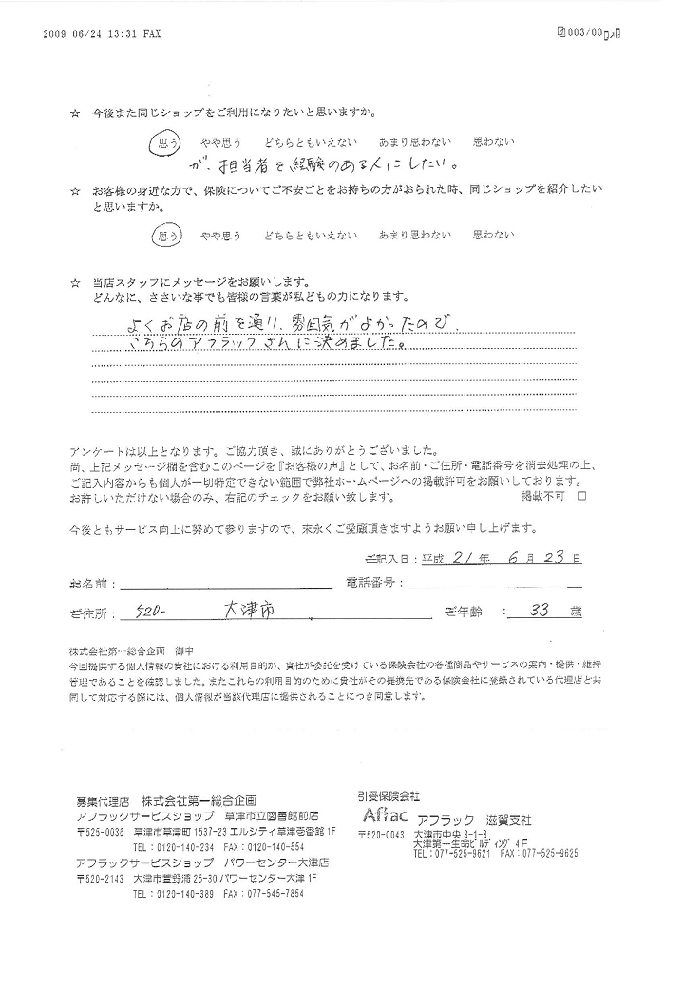 2009 06/24 13:31 FAX
003/00
☆ 今後また同じショップをご利用になりたいと思いますか。
思う やや思う どちらともいえない あまり思わない 思わない
が、担当者を経験のある人にしたい。
☆ お客様の身近な方で、保険についてご不安ごとをお持ちの方がおられた時、同じショップを紹介したい
と思いますか。
思う やや思う どちらともいえない あまり思わない 思わない
☆ 当店スタッフにメッセージをお願いします。
どんなに、ささいな事でも皆様の言葉が私どもの力になります。
よくお店の前を通り、雰囲気がよかったので
こちらのアフラックさんに決めました。
アンケートは以上となります。ご協力頂き、誠にありがとうございました。
尚、上記メッセージ欄を含むこのページを『お客様の声』として、お名前・ご住所・電話番号を消去処理の上、
ご記入内容からも個人が一切特定できない範囲で弊社ホームページへの掲載許可をお願いしております。
お許しいただけない場合のみ、右記のチェックをお願い致します。 掲載不可 □
今後ともサービス向上に努めて参りますので、末永くご愛顧頂きますようお願い申し上げます。
ご記入日：平成 21 年 6 月 23 日
お名前： 電話番号：
ご住所： 520- 大津市 ご年齢 ： 33 歳
株式会社第一総合企画 御中
今回提供する個人情報の貴社における利用目的が、貴社が委託を受けている保険会社の各種商品やサービスの案内・提供・維持
管理であることを確認しました。またこれらの利用目的のために貴社がその提携先である保険会社に登録されている代理店と共
同して対応する際には、個人情報が当該代理店に提供されることにつき同意します。
募集代理店 株式会社第一総合企画
アフラックサービスショップ 草津市立図書館前店
〒525-0036 草津市草津町 1537-23 エルシティ草津壱番館 1F
TEL：0120-140-234 FAX：0120-140-554
アフラックサービスショップ パワーセンター大津店
〒520-2143 大津市萱野浦 25-30 パワーセンター大津 1F
TEL：0120-140-389 FAX：077-545-7854
引受保険会社
Aflac アフラック 滋賀支社
〒520-0043 大津市中央 3-1-8
大津第一生命ビルディング 4F
TEL：077-525-9621 FAX：077-525-9625